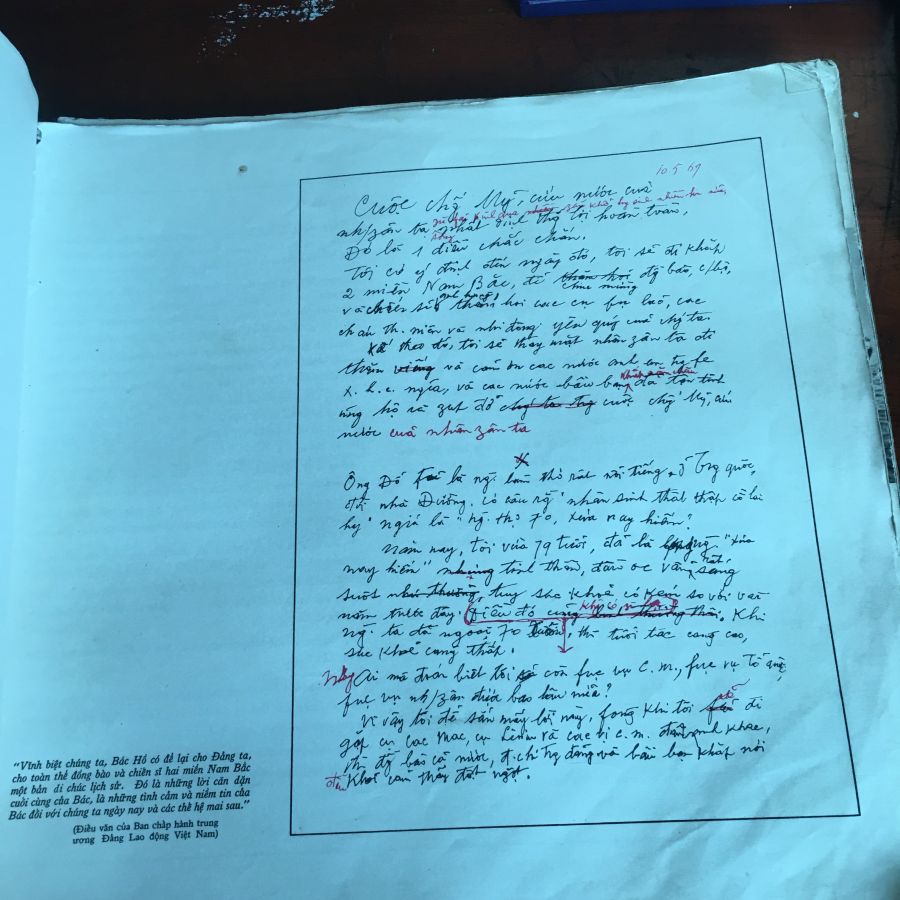 10.5.69
Cuộc chố'g Mỹ, cứu nước của
nh/zân ta, zù fải kinh qua nhiều zan khổ, hy sinh nhiều hơn nữa,
song nhất định thắ'g lợi hoàn toàn.
Đó là 1 điều chắc chắn.
Tôi có ý định đến ngày đó, tôi sẽ đi khắp
2 miền Nam Bắc, để thăm hỏi chúc mừng đồ'g bào, c/bộ,
và chiến sĩ anh hùng, thăm hỏi các cụ fụ lão, các
cháu th. niên và nhi đồng yêu quý của chú'g ta.
Kế theo đó, tôi sẽ thay mặt nhân zân ta đi
thăm viếng và cảm ơn các nước anh em trg fe
x. h. c. ngĩa, và các nước bầu bạn khắp năm châu đã tận tình
ủng hộ và zúp đỡ chú'g ta trg cuộc chố'g Mỹ, cứu
nước của nhân zân ta
Ông Đỗ Fủ là ng. làm thơ rất nổi tiếng, ở Trg quốc,
đời nhà Đường. có câu rằ'g "nhân sinh thất thập cổ lai
hy" ngĩa là "ng. thọ 70, xưa nay hiếm".
Năm nay, tôi vừa 79 tuổi, đã là hạng ng. "xưa
nay hiếm" nhưng tinh thần, đầu óc vẫn rất sáng
suốt như thường, tuy sức khoẻ có kém so với vài
năm trước đây. Điều đó cũng không có zì lạ. Khi
ng. ta đã ngoại 70 xuân, thì tuổi tác càng cao,
sức khoẻ càng thấp.
Nhưng Ai mà đoán biết tôi sẽ còn fục vụ c. m., fục vụ Tổ quốc,
fục vụ nh/zân được bao lâu nữa?
Vì vậy tôi để sẵn mấy lời này, fòng khi tôi sẽ đi
gặp cụ Các Mác, cụ Lênin và các vị c. m. đàn anh khác,
thì đồ'g bào cả nước, đ. chí trg đảng và bầu bạn khắp nơi
đều Khỏi cảm thấy đột ngột.
"Vĩnh biệt chúng ta, Bác Hồ có để lại cho Đảng ta,
cho toàn thể đồng bào và chiến sĩ hai miền Nam Bắc
một bản di chúc lịch sử. Đó là những lời căn dặn
cuối cùng của Bác, là những tình cảm và niềm tin của
Bác đối với chúng ta ngày nay và các thế hệ mai sau."
(Điếu văn của Ban chấp hành trung
ương Đảng Lao động Việt Nam)